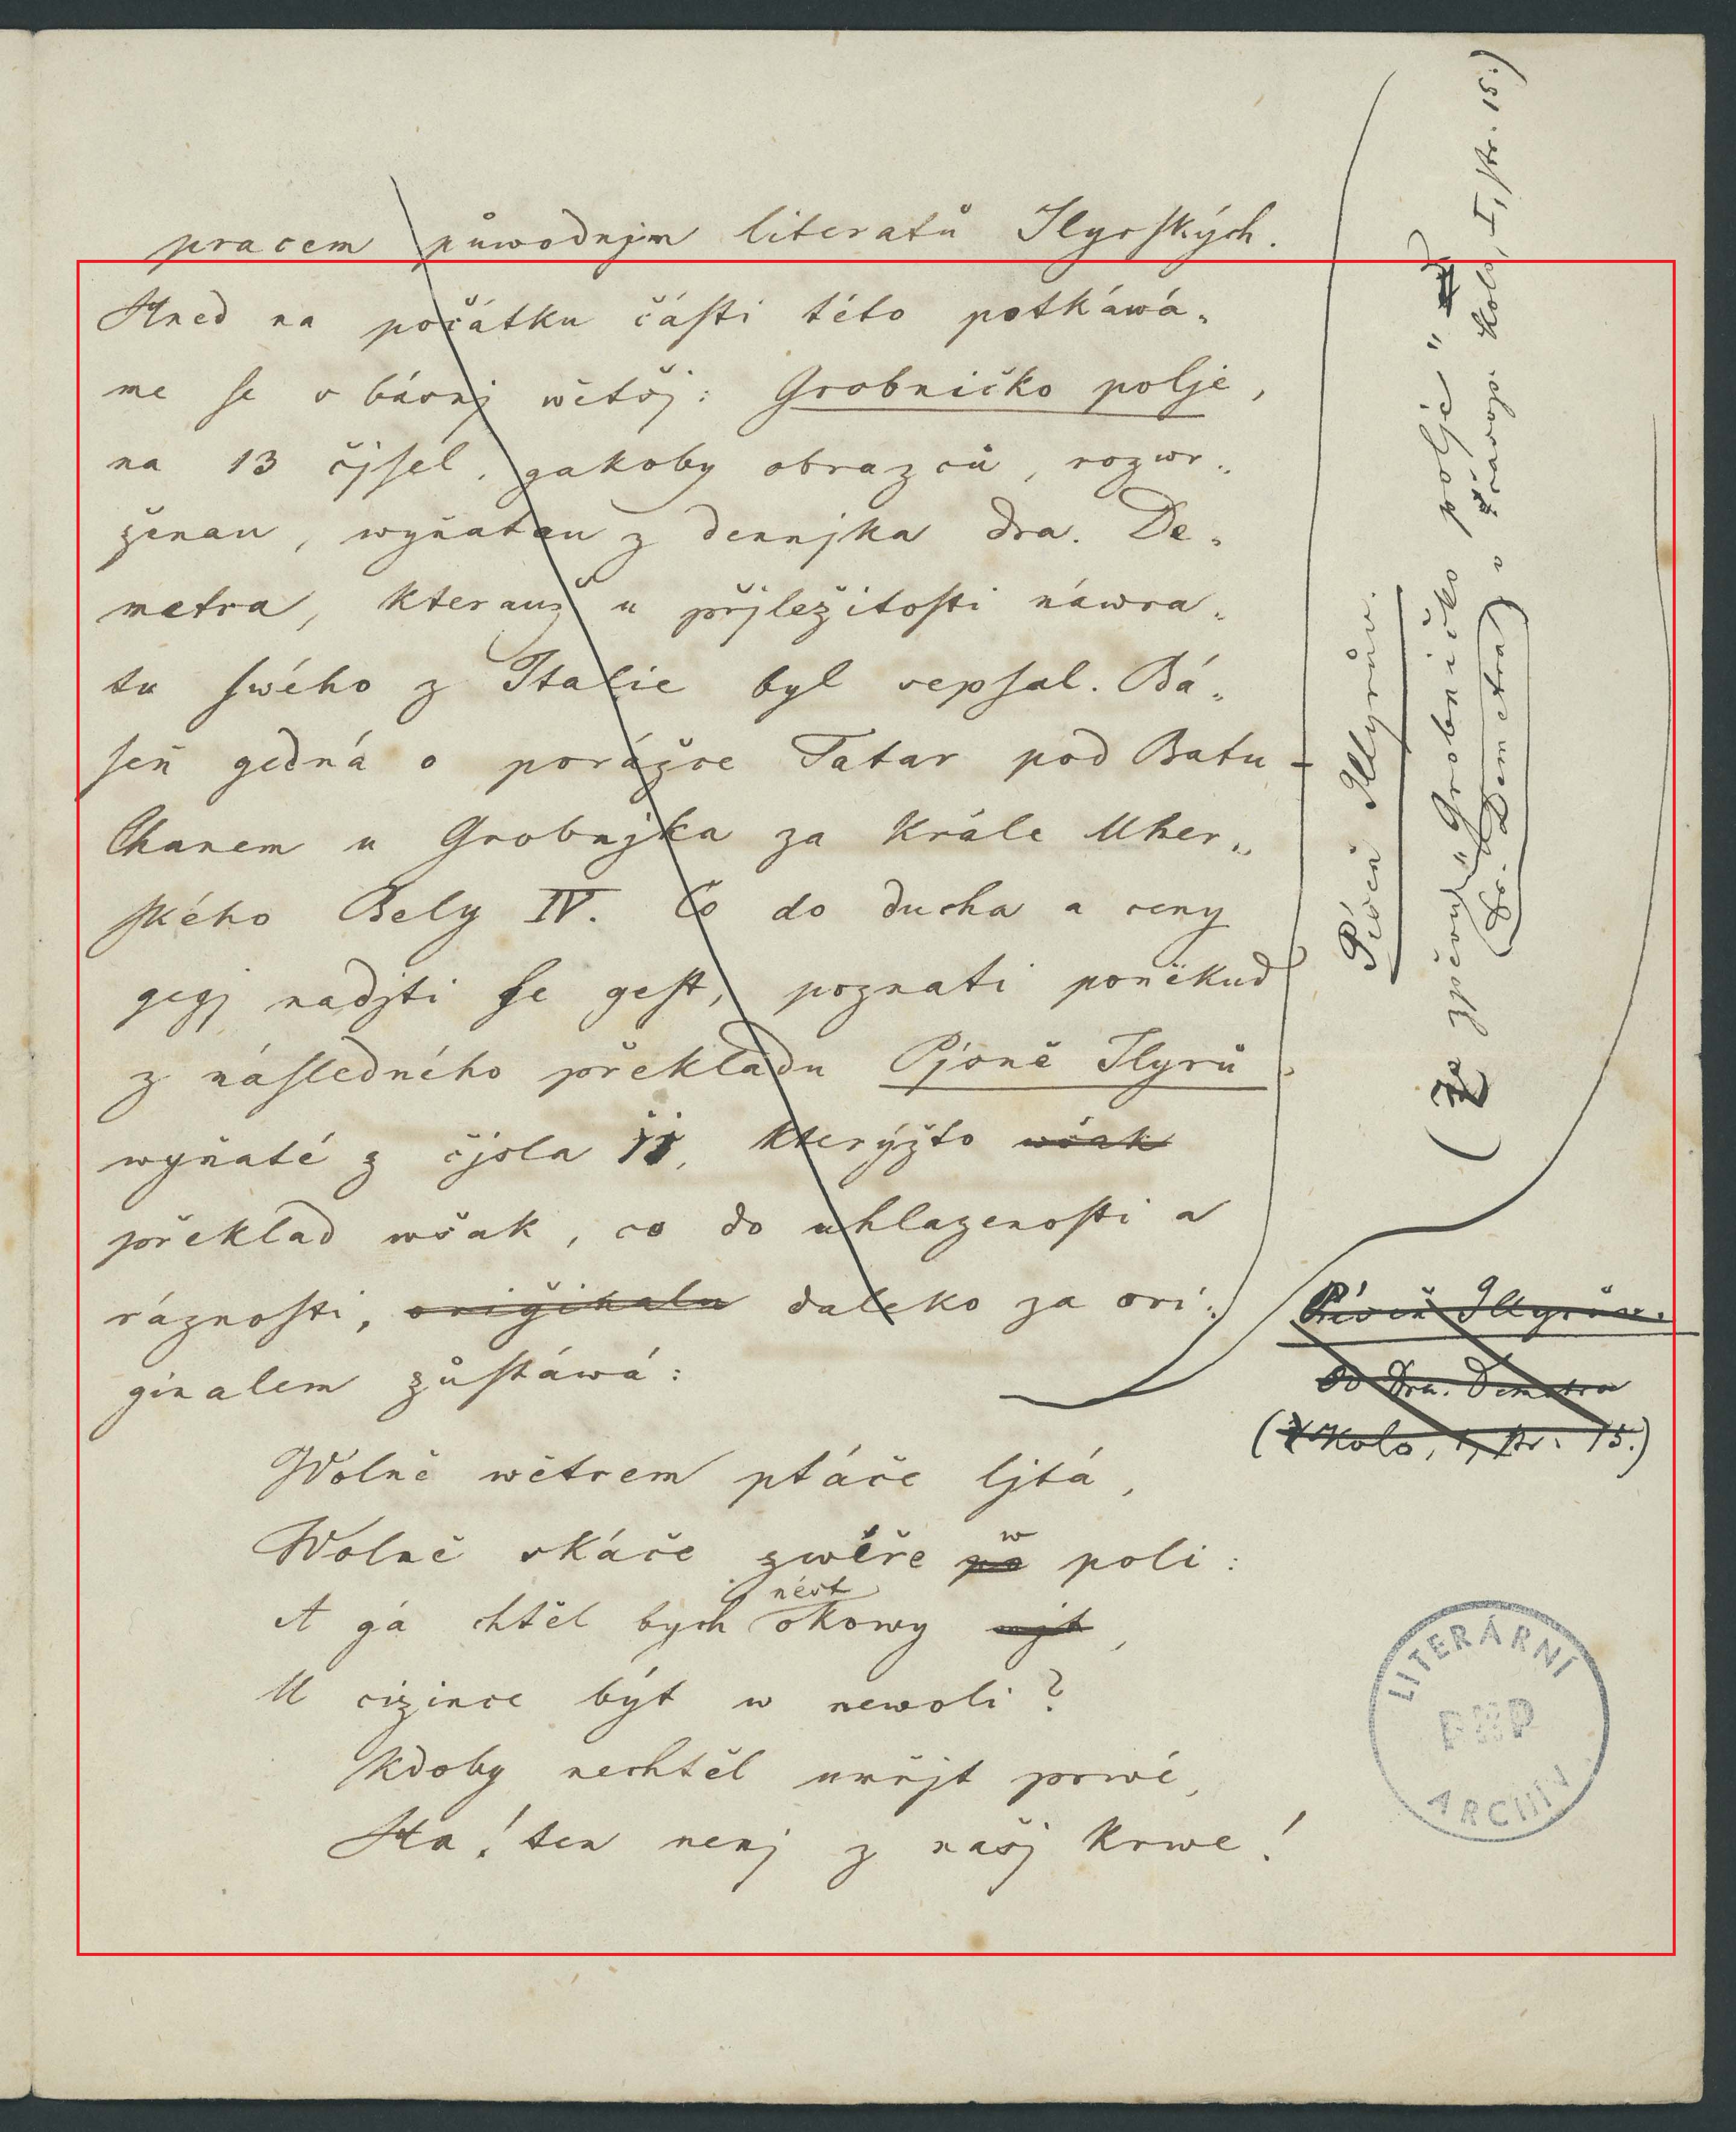 pracem půwodnjm literatů Ilyrských.
Hned na počátku části této potkáwá„
me se s básnj wětšj: Grobničko polje,
na 13 čjsel, gakoby obrazců, rozwr„
ženau, wyňatau z dennjka dra. De„
metra, kterauž u přjležitosti náwra„
tu swého z Italie byl sepsal. Bá„
seň gedná o porážce Tatar pod Batu-
Chanem u Grobnjka za Krále Uher„
ského Bely IV. Co do ducha a ceny
gegj nadjti se gest, poznati poněkud
z následného překladu Pjsně Ilyrů
wyňaté z čjsla jj, kterýžto wšak
překlad wšak, co do uhlazenosti a
ráznosti, originalu daleko za ori„
ginalem zůstáwá:
Wolně wětrem ptáče ljtá,
Wolně skáče zwěře po w poli:
A gá chtěl bych nést okowy
U cizince být w newoli?
Kdoby nechtěl umřjt prwé,
Ha! ten nenj z našj krwe!
Píseň Illyrův.
(Ze zpěvu „Grobničko polje"
Dr. Demetra) v časop. Kolo, I, str. 15.)
Píseň Illyrův.
Od Dra. Demetra
(Kolo, I, str. 15.)
LITERÁRNÍ
PNP
ARCHIV